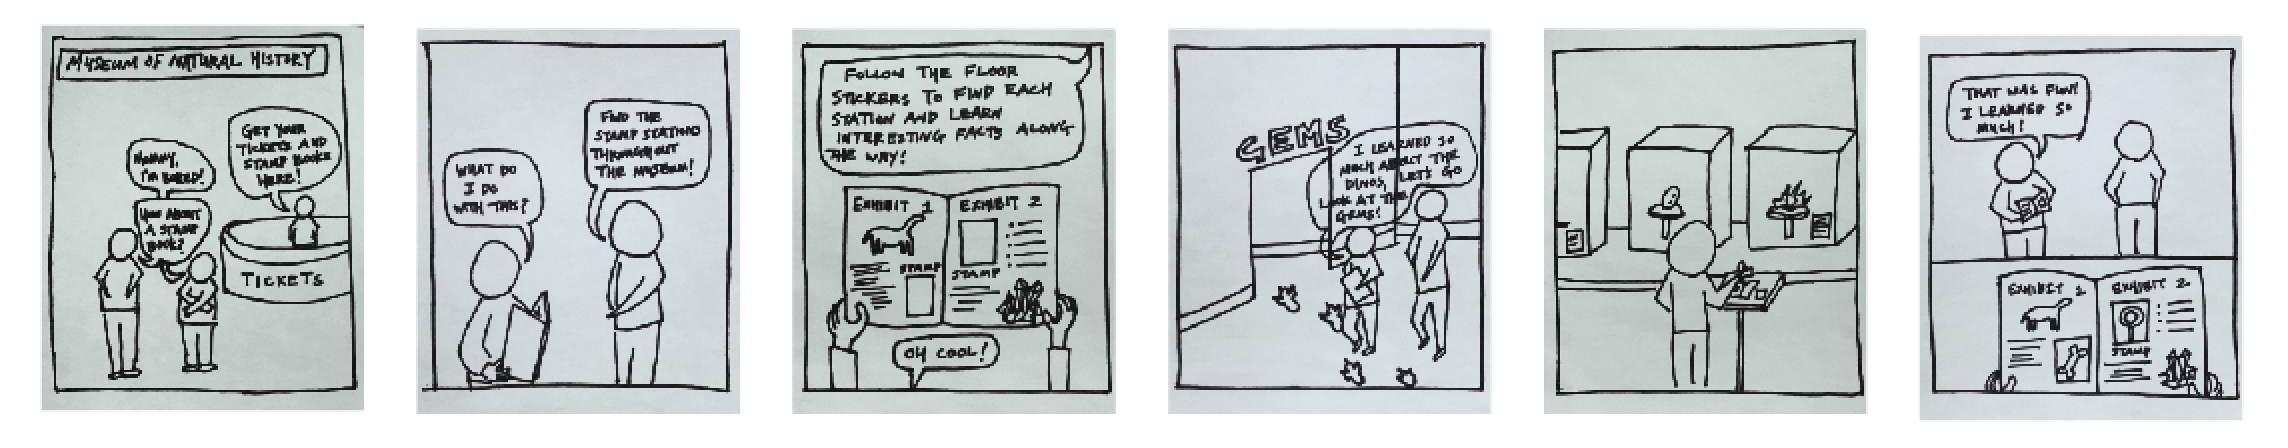 MUSEUM OF NATURAL HISTORY
GET YOUR
TICKETS AND
STAMP BOOKS
HERE!
MOMMY,
I'M BORED!
HOW ABOUT
A STAMP
BOOK?
TICKETS
WHAT DO
I DO
WITH THIS?
FIND THE
STAMP STATIONS
THROUGHOUT
THE MUSEUM!
FOLLOW THE FLOOR
STICKERS TO FIND EACH
STATION AND LEARN
INTERESTING FACTS ALONG
THE WAY!
EXHIBIT 1
EXHIBIT 2
STAMP
STAMP
OH COOL!
GEMS
I LEARNED SO
MUCH ABOUT THE
DINOS, LET'S GO
LOOK AT THE
GEMS!
THAT WAS FUN!
I LEARNED SO
MUCH!
EXHIBIT 1
EXHIBIT 2
STAMP